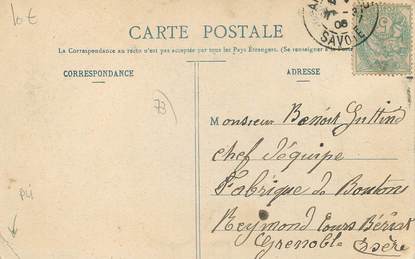 lot
CARTE POSTALE
La Correspondance au recto n'est pas acceptée par tous les Pays Étrangers. (Se renseigner à la Poste
CORRESPONDANCE
ADRESSE
SAVOIE
Monsieur Benoît
chef d'équipe
Fabrique de Boutons
Reymond Cours Bériat
Grenoble Isère
PLI